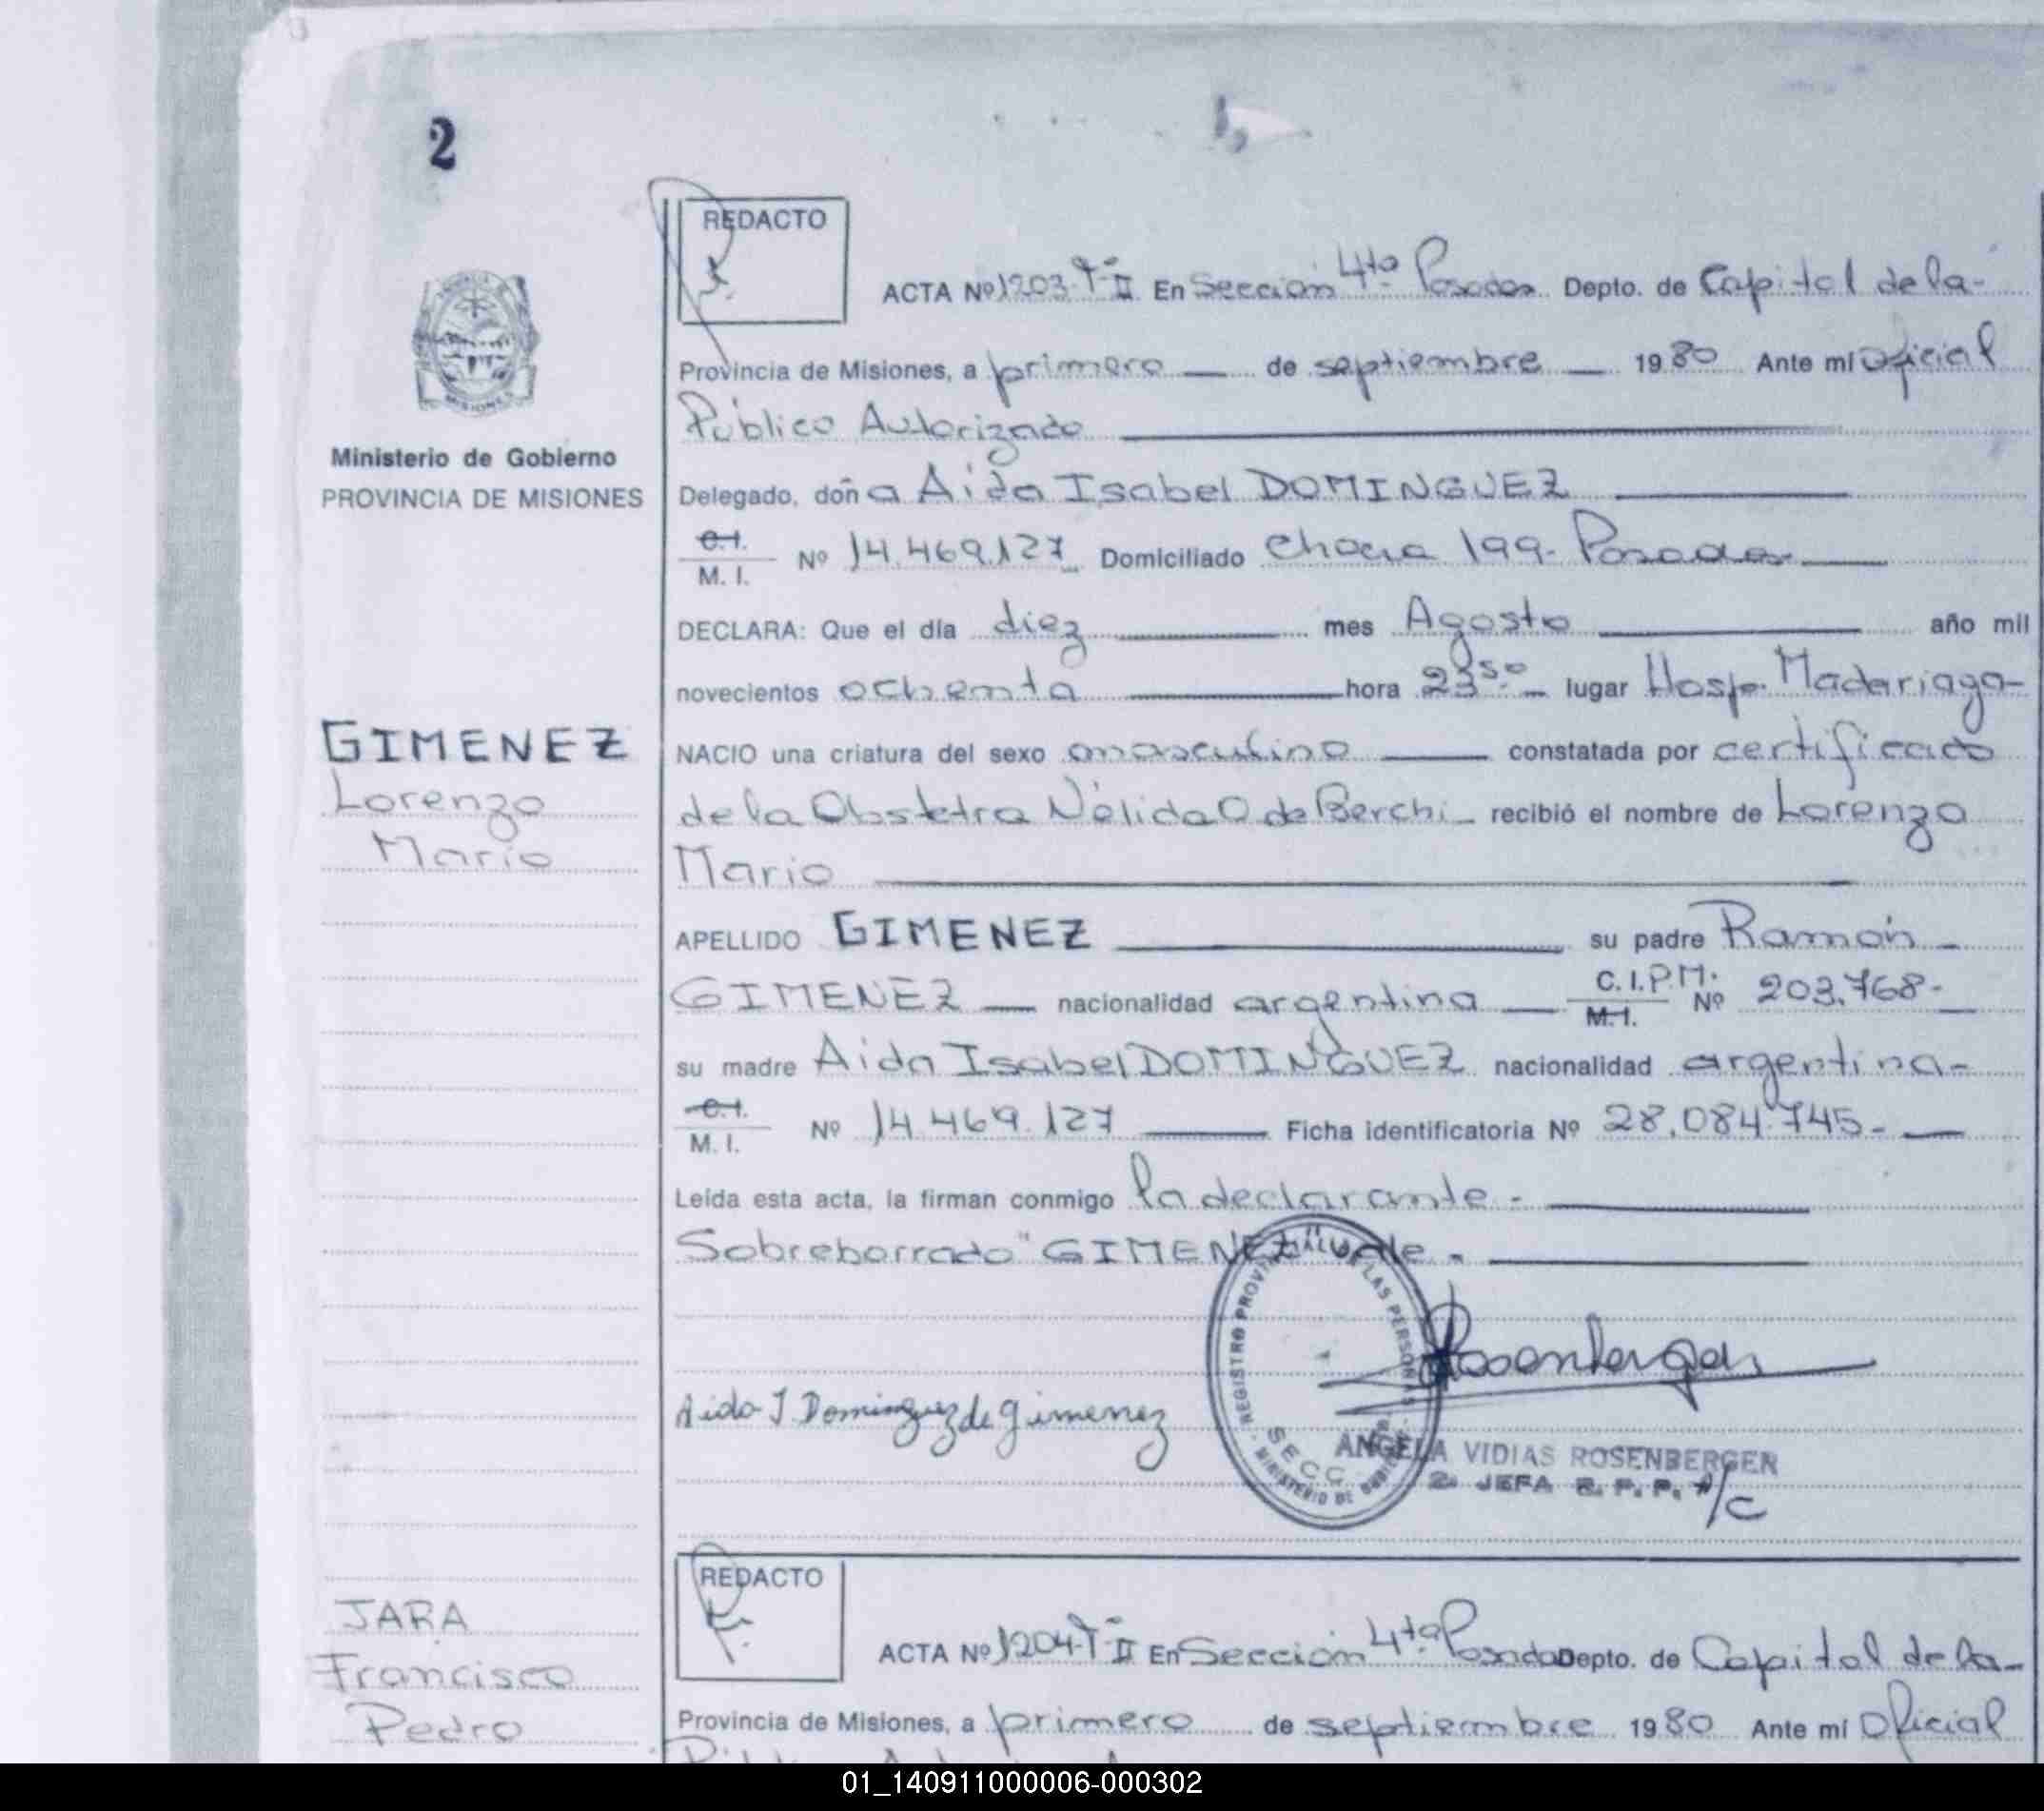 2
REDACTO
ACTA Nº 1203-T-II En Sección 4ta Posadas Depto. de Capital de la-
Provincia de Misiones, a primero de septiembre 1980 Ante mí Oficial
Público Autorizado
Ministerio de Gobierno
PROVINCIA DE MISIONES
Delegado, doña Aida Isabel DOMINGUEZ
C.I.
M. I. Nº 14.469.127 Domiciliado Chacra 199- Posadas
DECLARA: Que el día diez mes Agosto año mil
novecientos ochenta hora 23 50 lugar Hosp. Madariaga-
GIMENEZ
Lorenzo
Mario
NACIO una criatura del sexo masculino constatada por certificado
de la Obstetra Nélida O. de Berchi recibió el nombre de Lorenzo
Mario
APELLIDO GIMENEZ su padre Ramón
GIMENEZ nacionalidad argentina C.I.P.M. M.I. Nº 203.768-
su madre Aida Isabel DOMINGUEZ nacionalidad argentina-
C.I.
M. I. Nº 14.469.127 Ficha identificatoria Nº 28.084.745-
Leída esta acta, la firman conmigo la declarante-
Sobreborrado "GIMENEZ" Vale-
REGISTRO PROVINCIAL DE LAS PERSONAS
SECC.
MINISTERIO DE
Rosenberger
Aida I Dominguez de Gimenez
ANGELA VIDIAS ROSENBERGER
2a JEFA R. P. P. A/C
REDACTO
ACTA Nº 1204-T-II En Sección 4ta Posadas Depto. de Capital de la-
JARA
Francisco
Pedro
Provincia de Misiones, a primero de septiembre 1980 Ante mí Oficial
01_140911000006-000302